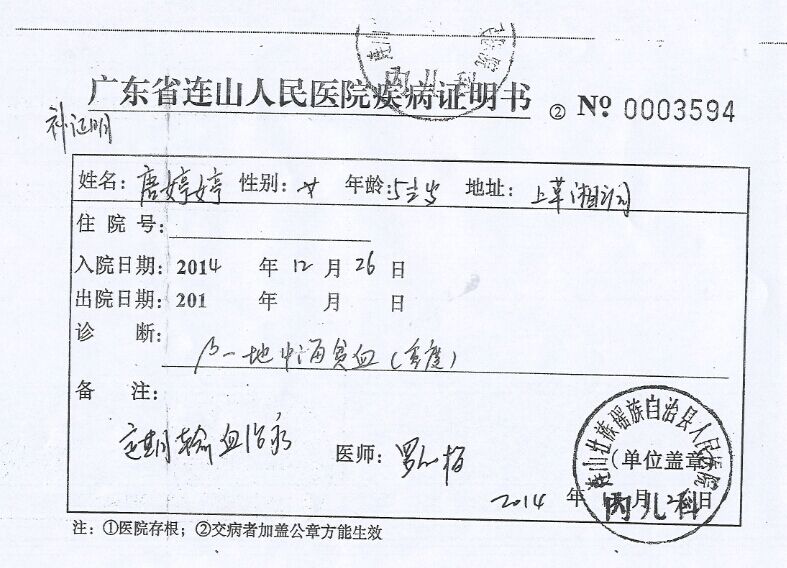 广东省连山人民医院疾病证明书 ② No. 0003594
补证明
姓名：唐婷婷 性别：女 年龄：5岁 地址：上草
住院号：
入院日期：2014 年 12 月 26 日
出院日期：201 年 月 日
诊断：
β一地中海贫血（重度）
备注：
定期输血治疗 医师：罗
连山壮族瑶族自治县人民医院
（单位盖章）
2014 年 月 日
内儿科
注：①医院存根；②交病者加盖公章方能生效